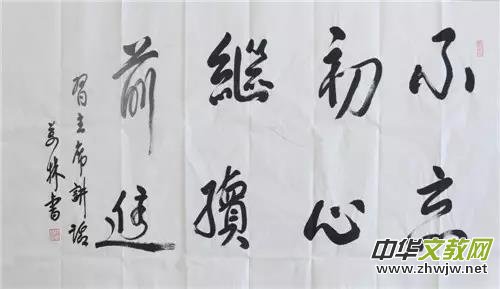 不忘
初心
繼續
前進
習主席講話
林書
中华文教网
www.zhwjw.net